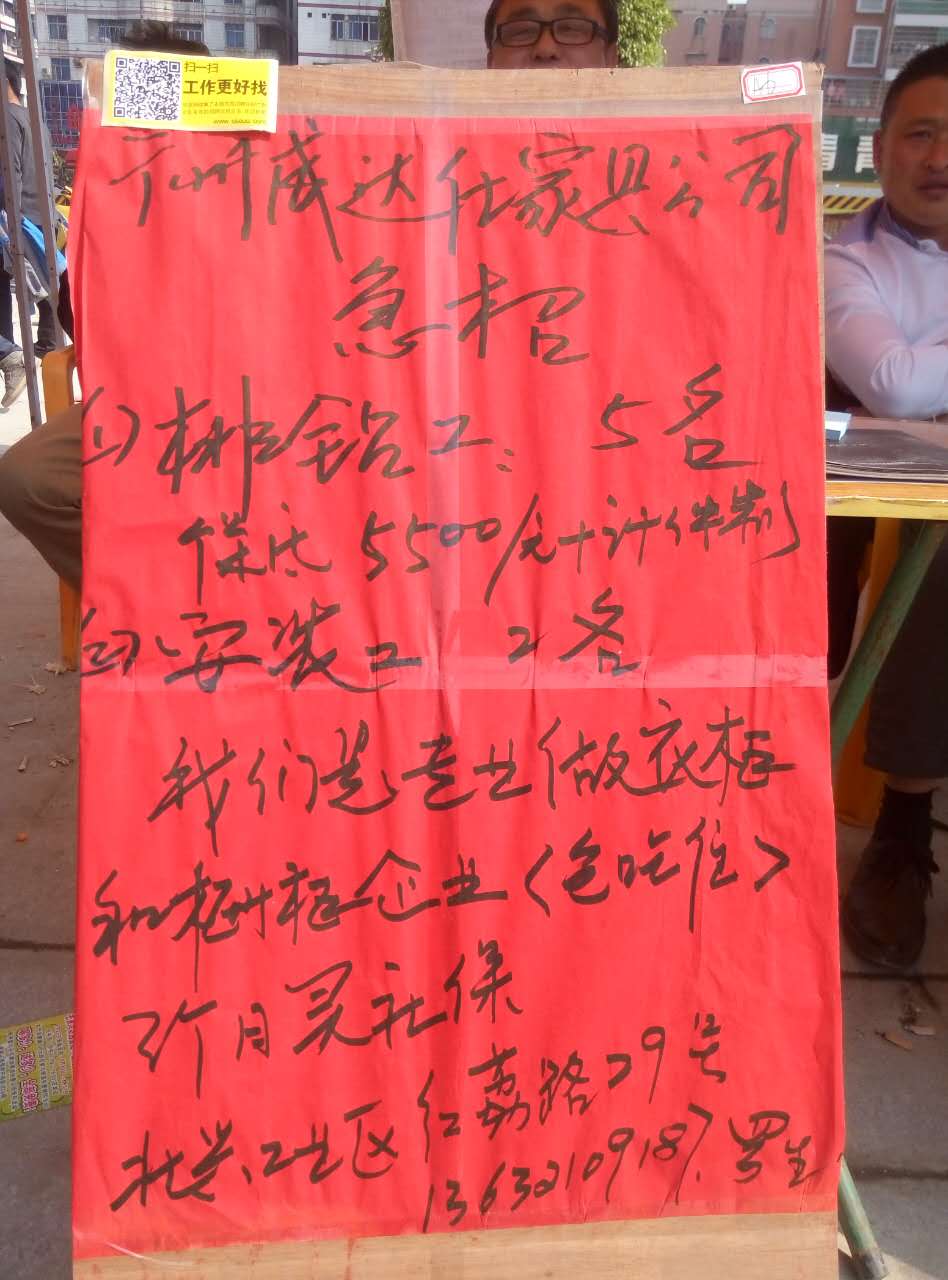 扫一扫
工作更好找
广州威达仕家具公司
急招
(1) 排钻工: 5名
保底 5500/元+计件制
(2) 安装工 2名
我们是专业做衣柜
和橱柜企业<包吃住>
3个月买社保
北兴工业区红荔路29号
13632109187 罗生